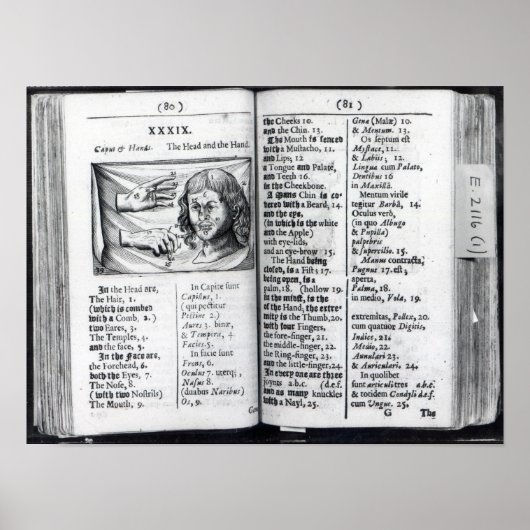 (80)
XXXIX.
Caput & Hands. The Head and the Hand.
39
In the Head are,
The Hair, 1.
(which is combed
with a Comb, 2.)
two Eares, 3.
The Temples, 4.
and the face, 5.
In the face are,
the Forehead, 6.
both the Eyes, 7.
The Nose, 8.
(with two Nostrils)
The Mouth, 9.
In Capite sunt
Capillus, 1.
(qui pectitur
Pectine 2.)
Aures 3. binæ,
& Tempora, 4.
Facies 5.
In facie sunt
Frons, 6.
Oculus 7. uterq;
Nasus 8.
(duabus Naribus)
Os, 9.
(81)
the Cheeks 10.
and the Chin. 13.
The Mouth is fenced
with a Mustacho, 11.
and Lips; 12
a Tongue and Palate,
and Teeth 16
in the Cheekbone.
A Mans Chin is co-
vered with a Beard, 14.
and the eye,
(in which is the white
and the Apple)
with eye-lids,
and an eye-brow 15
The Hand being
closed, is a Fist; 17
being open, is a
palm, 18. (hollow 19.
in the midst, is the
of the Hand; the extre-
mity is the Thumb, 20
with four Fingers,
the fore-finger, 21
the middle-finger, 22
the Ring-finger, 23
and the little-finger, 24
In every one are three
joynts a.b.c. (d.e.f.
and as many knuckles
with a Nayl, 25.
Genæ (Malæ) 10.
& Mentum. 13.
Os septum est
Mystace, 11.
& Labiis; 12
Lingua cum Palato,
Dentibus 16
in Maxillâ.
Mentum virile
tegitur Barbâ, 14.
Oculus verò,
(in quo Albugo
& Pupilla)
palpebris
& supercilio. 15
Manus contracta,
Pugnus 17. est;
aperta,
Palma, 18.
in medio, Vola, 19.
extremitas, Pollex, 20.
cum quatuor Digitis,
Indice, 21.
Medio, 22.
Annulari 23
& Auriculari. 24.
In quolibet
sunt articuli tres a.b.c.
& totidem Condyli d.e.f.
cum Ungue. 25.
G The
E.2116(1)